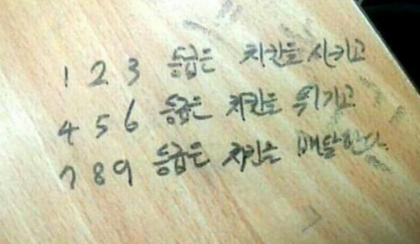 1 2 3 등급은 치킨을 시키고
4 5 6 등급은 치킨을 튀기고
7 8 9 등급은 치킨을 배달한다